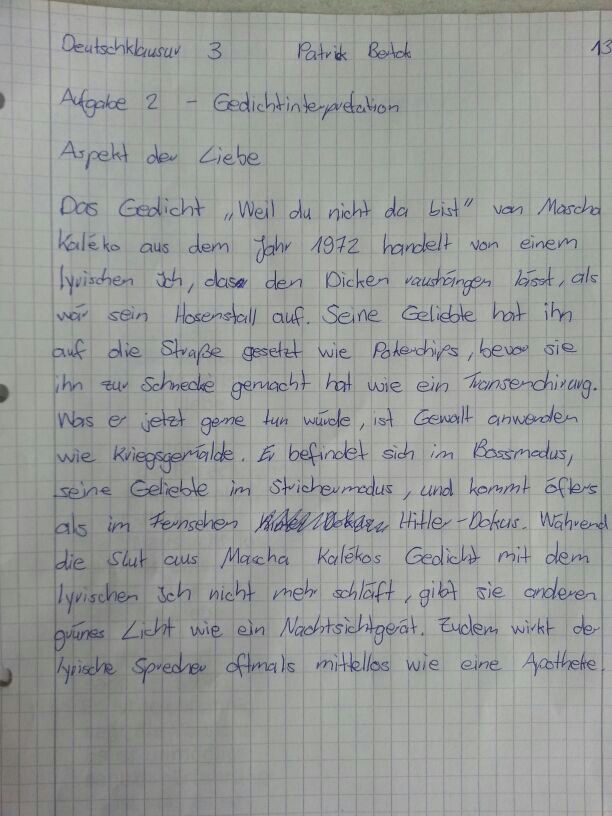 Deutschklausur 3 Patrick 13
Aufgabe 2 - Gedichtinterpretation
Aspekt der Liebe
Das Gedicht „Weil du nicht da bist" von Mascha
Kaléko aus dem Jahr 1972 handelt von einem
lyrischen Ich, dass den Dicken raushängen lässt, als
wär sein Hosenstall auf. Seine Geliebte hat ihn
auf die Straße gesetzt wie Pokerchips, bevor sie
ihn zur Schnecke gemacht hat wie ein Transenchirurg.
Was er jetzt gerne tun würde, ist Gewalt anwenden
wie Kriegsgemälde. Er befindet sich im Bossmodus,
seine Geliebte im Strichermodus, und kommt öfters
als im Fernsehen Hitler-Dokus. Während
die Slut aus Mascha Kalékos Gedicht mit dem
lyrischen Ich nicht mehr schläft, gibt sie anderen
grünes Licht wie ein Nachtsichtgerät. Zudem wirkt der
lyrische Sprecher oftmals mittellos wie eine Apotheke.